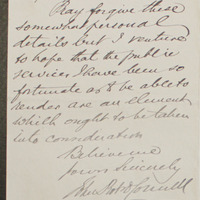 Pray forgive these
somewhat personal
details but I venture
to hope that the public
services I have been so
fortunate as to be able to
render are an element
which ought to be taken
into consideration
Believe me
yours sincerely
John